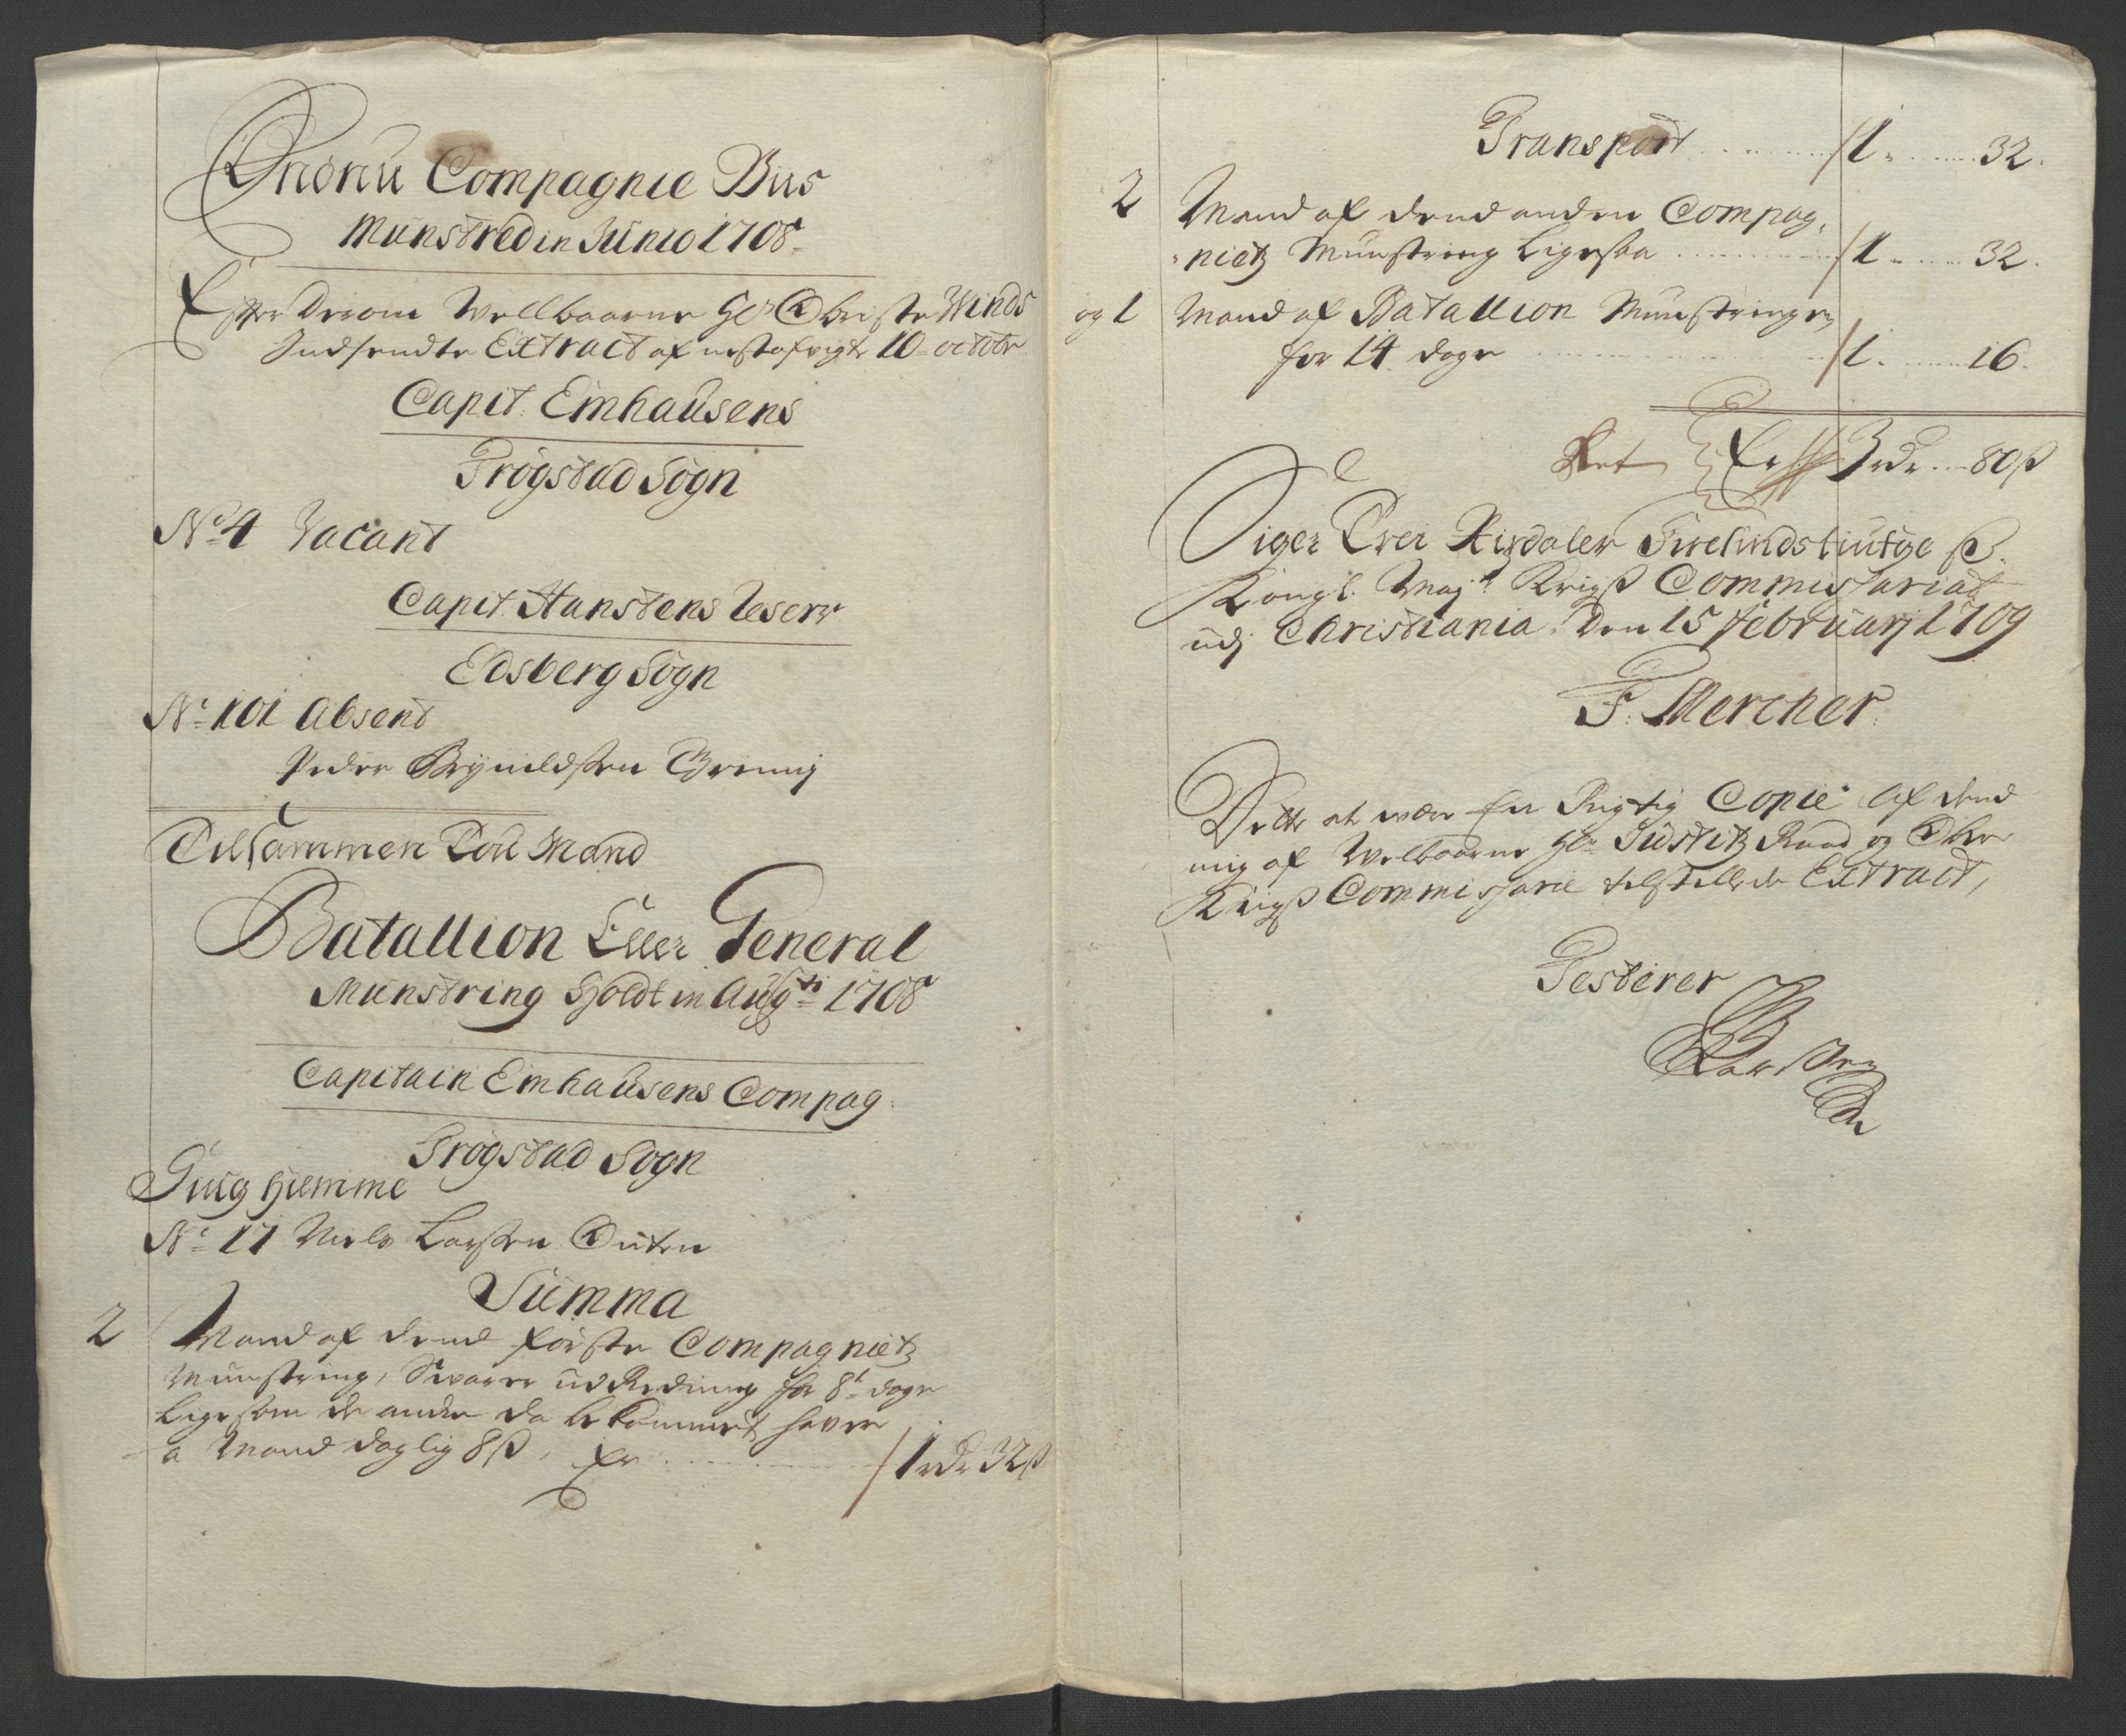 Anden Compagnie Viis
Munstred in Junio 1708
Efter derom Wellbaarne Hr Obriste Winds
Indsendte Extract af nestafvigte 10 octobr
Capit. Emhausens
Trögstad Sogn
No 4 Vacant
Capit. Hanstens Reserv
Edsberg Sogn
No 101 Absent
Peder Brÿnildsßen Grenig
Tilsammen Toe Mand
Batallion Eller General
Munstring Holdt in Augti 1708
Capitain Emhausens Compag:
Trögstad Sogn
Siug hiemme
No 17 Niels Larsßen Outen
Summa
2 Mand af dend förste Compagnietz
Munstring, Swarer udRedning for 8t dage
Lige som de andre da bekommet haver
a Mand daglig 8 ß, Er 1 rdr 32 ß
Transport 1 32.
2 Mand af dend anden Compag,
nietz Munstring Ligesaa 1 32.
og 1 Mand af Batallion Munstringen
for 14 dage 1. 16.
Ret Er 3 rdr 80 ß
Siger Trei Rixdaler Firesindstiufge ß.
Kongl. Mayts Krigß Commissariat
udj Christiania Den 15 Februarj 1709
F. Mercker
Dette at være En Rigtig Copie Af dend
mig af Welbaarne Hr Justitz Raad og Ober
Krigß Commissarie tilstillede Extract,
Testerer